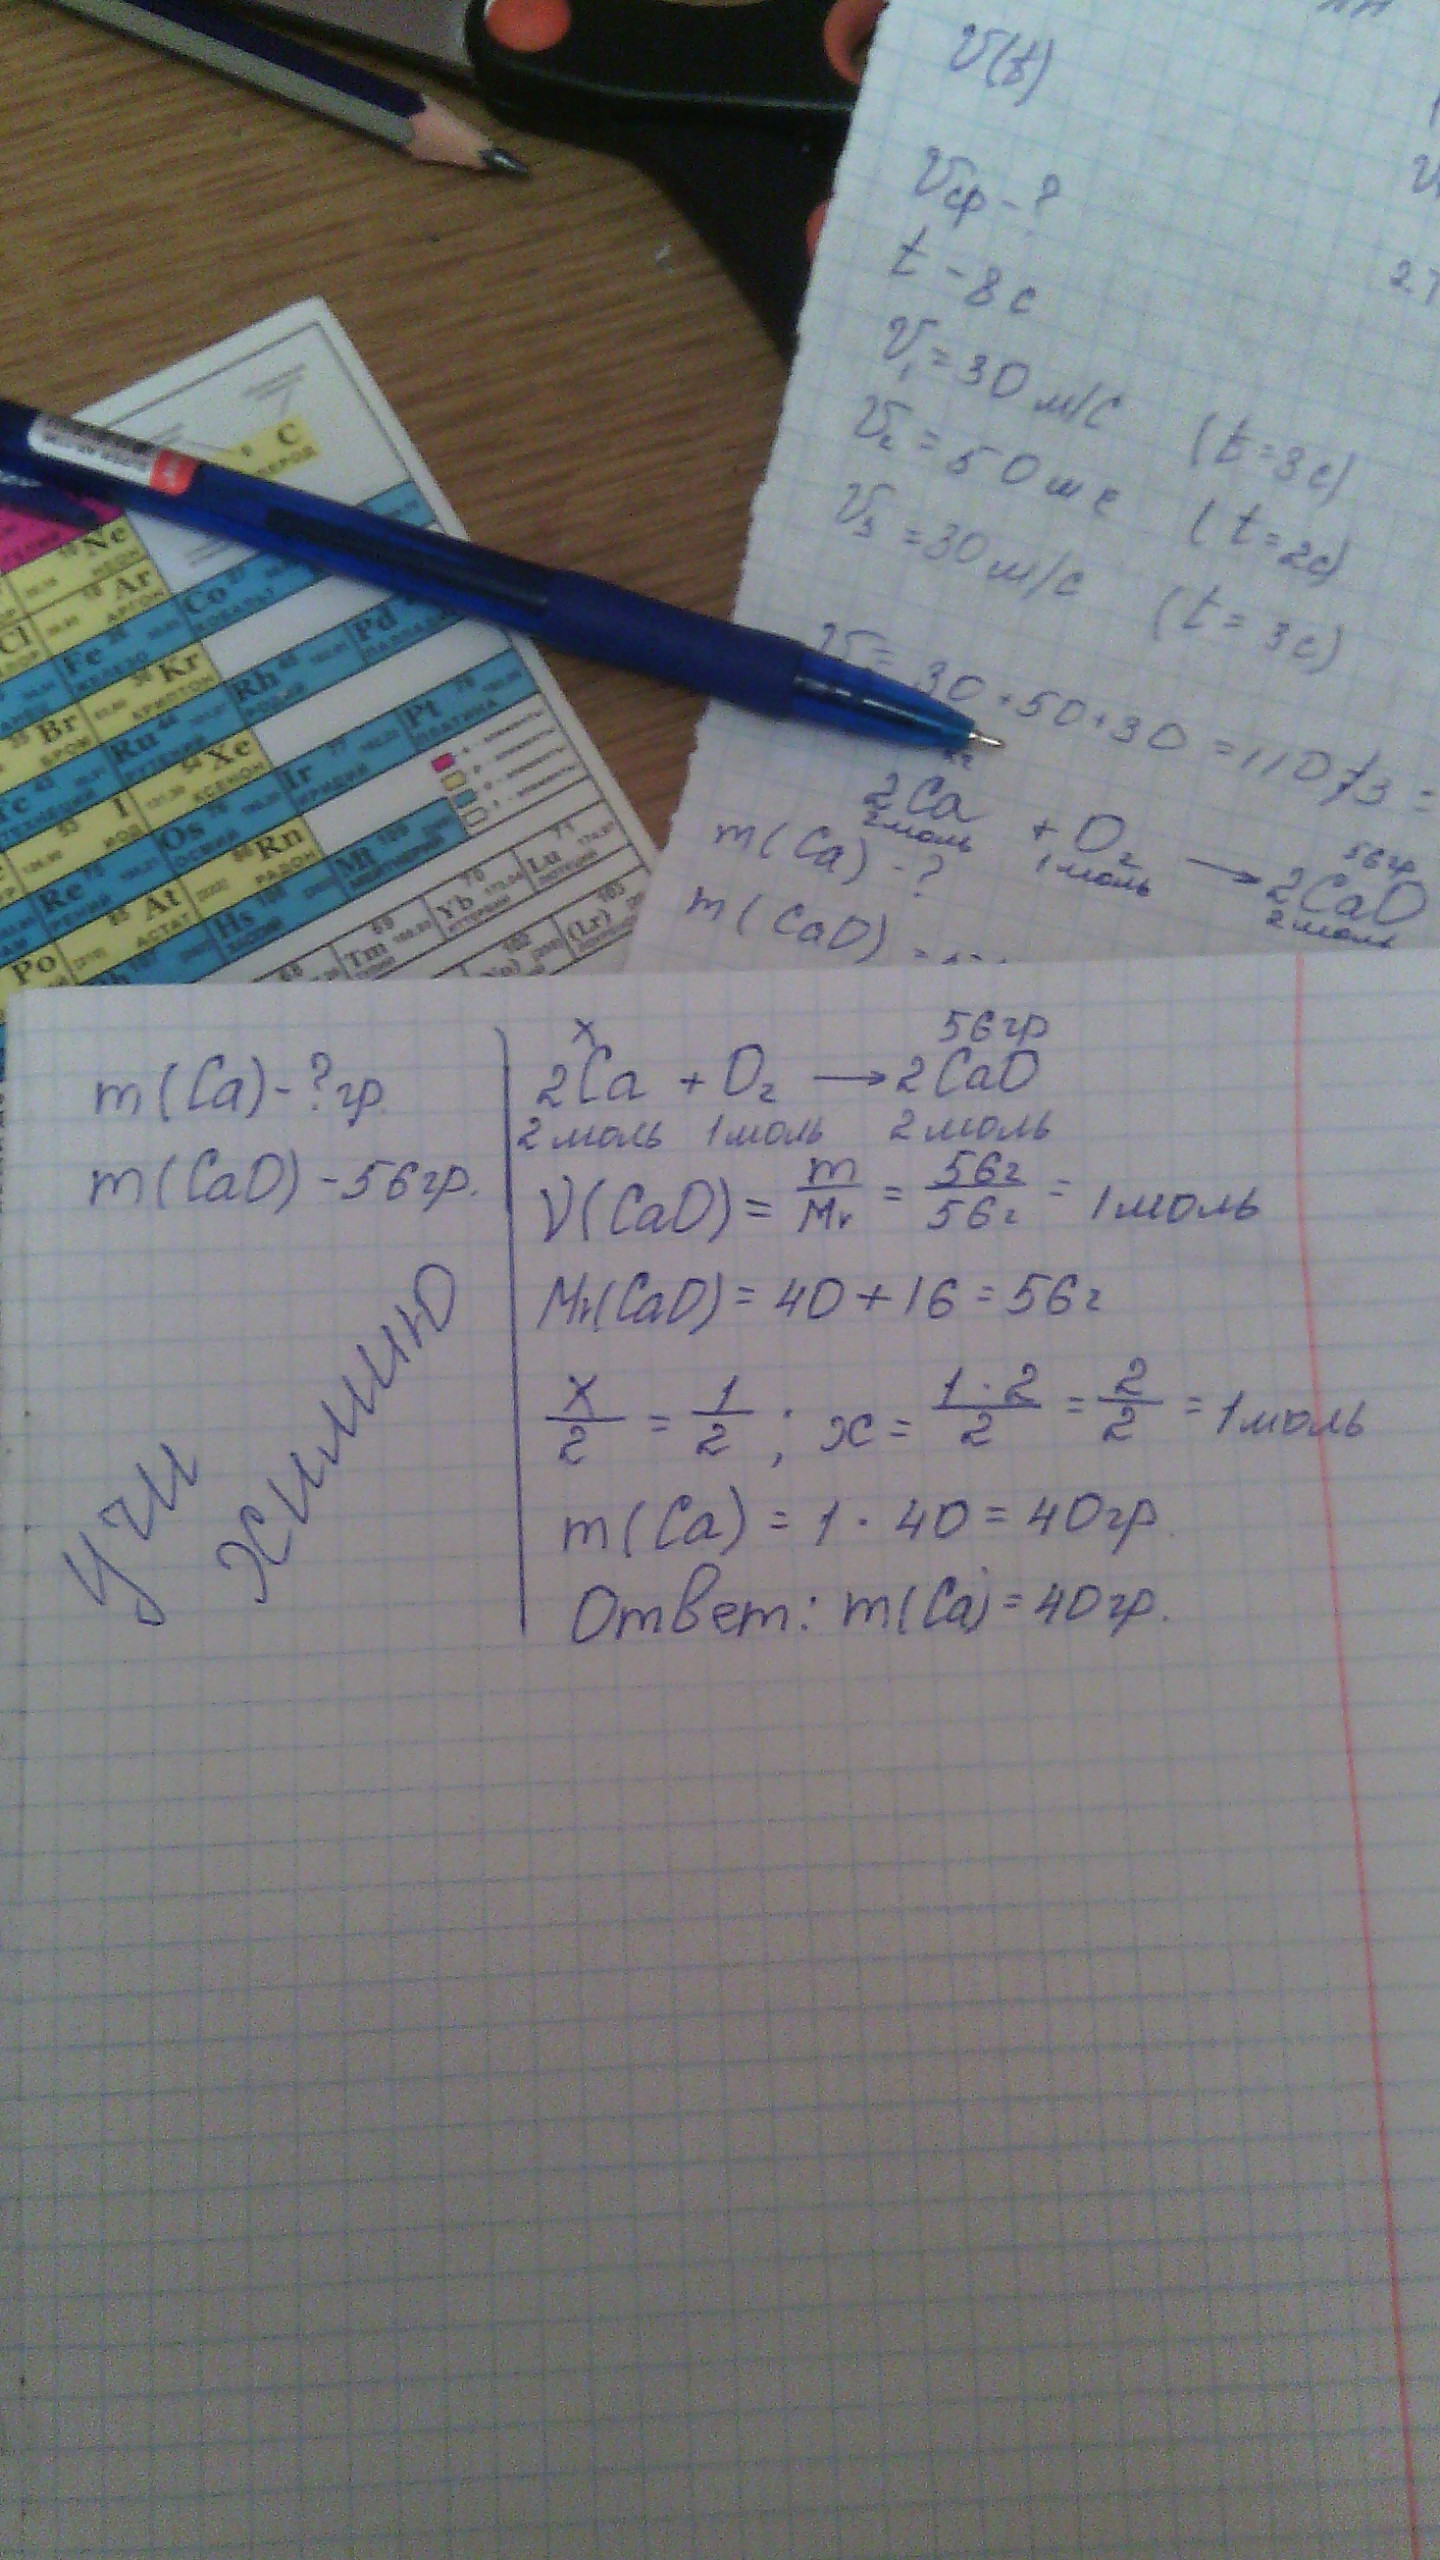 V(t)
Vср - ?
t - 8 с
V₁ = 30 м/с (t = 3 с)
V₂ = 50 м с (t = 2 с)
V₃ = 30 м/с (t = 3 с)
V = 30 + 50 + 30 = 110 / 3 =
2Ca + O₂ → 2CaO
56 гр
2 моль 1 моль 2 моль
m(Ca) - ?
m(CaO)
C
Ne
Ar
АРГОН
Cl
Co
КОБАЛЬТ
Fe
ЖЕЛЕЗО
Pd
Kr
КРИПТОН
Br
БРОМ
Rh
РОДИЙ
Ru
РУТЕНИЙ
Pt
ПЛАТИНА
Xe
КСЕНОН
I
ИОД
Ir
ИРИДИЙ
Os
ОСМИЙ
Rn
РАДОН
Re
РЕНИЙ
At
АСТАТ
Mt
МЕЙТНЕРИЙ
Hs
Po
Lu
Yb
Tm
(Lr)
m(Ca) - ? гр
m(CaO) - 56 гр.
x 56 гр
2Ca + O₂ → 2CaO
2 моль 1 моль 2 моль
ν(CaO) = m/Mr = 56г/56г = 1 моль
Mr(CaO) = 40 + 16 = 56г
x/2 = 1/2 ; x = 1·2/2 = 2/2 = 1 моль
m(Ca) = 1 · 40 = 40 гр.
Ответ: m(Ca) = 40 гр.
учи
химию